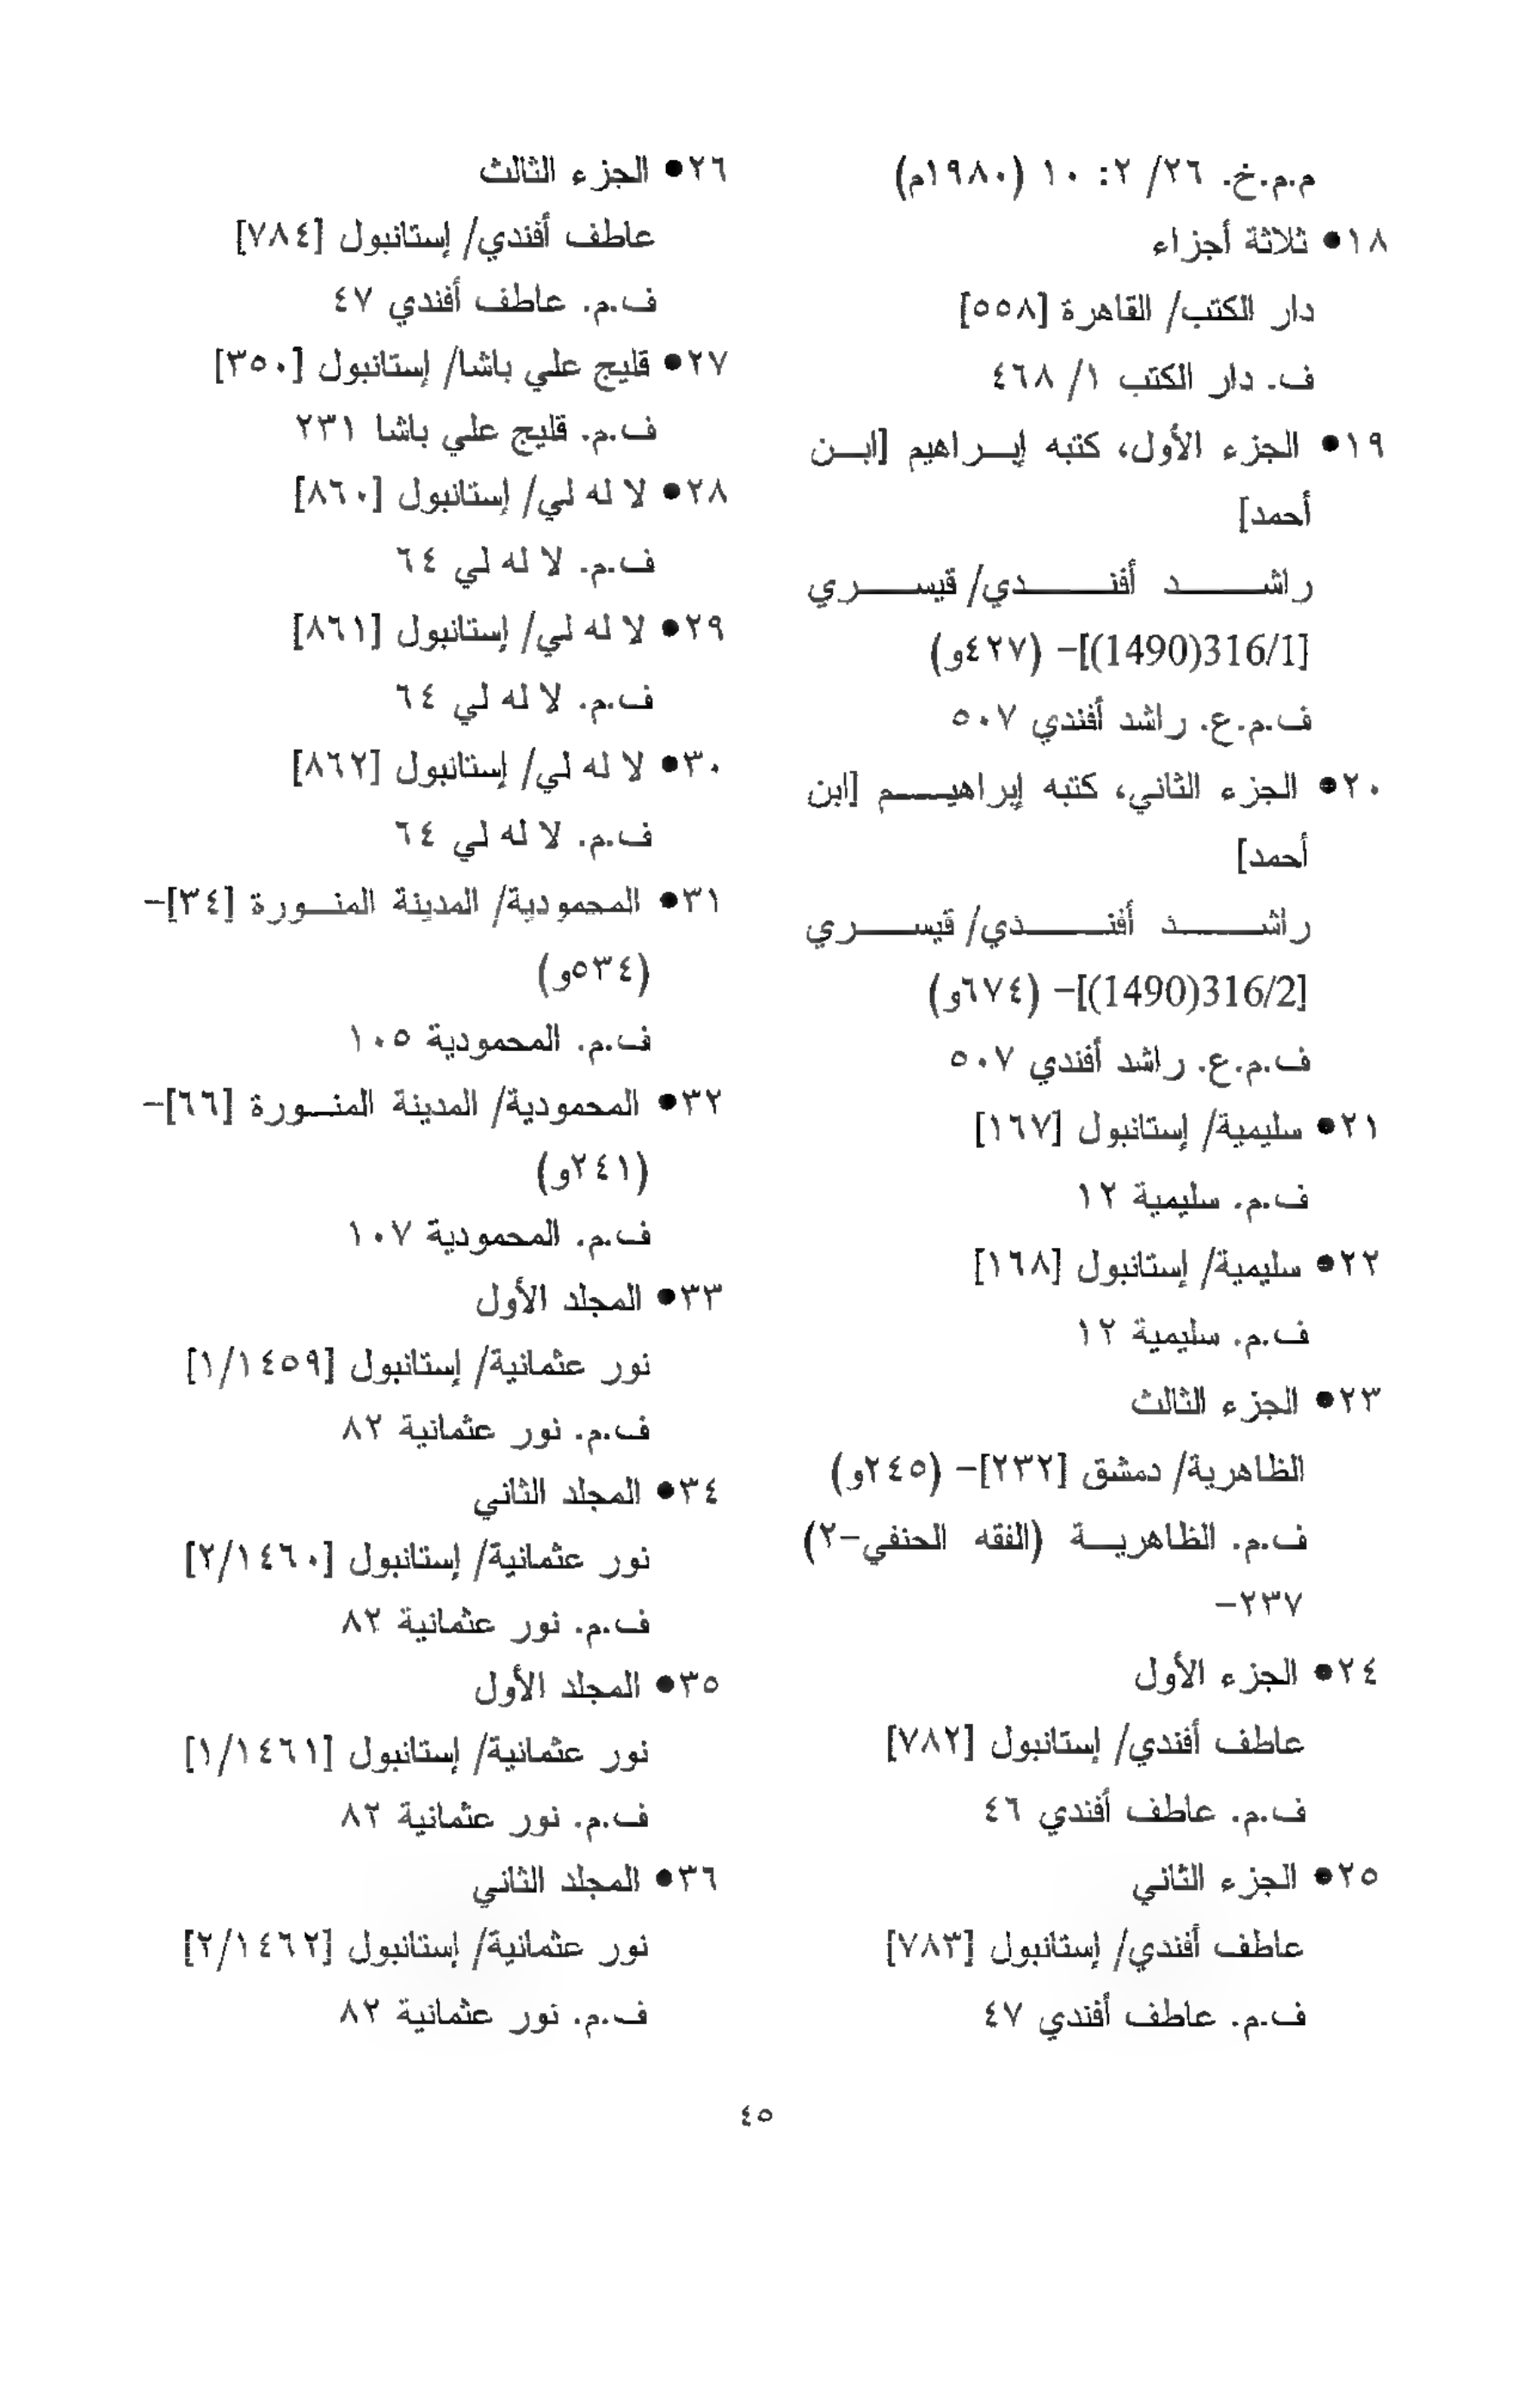 م.م.خ. ٢٦/ ٢: ١٠ (١٩٨٠م)
١٨● ثلاثة أجزاء
دار الكتب/ القاهرة [٥٥٨]
ف. دار الكتب ١/ ٤٦٨
١٩● الجزء الأول، كتبه إبراهيم [ابن
أحمد]
راشد أفندي/ قيسري
[316/1(1490)]– (٤٢٧و)
ف.م.ع. راشد أفندي ٥٠٧
٢٠● الجزء الثاني، كتبه إبراهيم [ابن
أحمد]
راشد أفندي/ قيسري
[316/2(1490)]– (٦٧٤و)
ف.م.ع. راشد أفندي ٥٠٧
٢١● سليمية/ إستانبول [١٦٧]
ف.م. سليمية ١٢
٢٢● سليمية/ إستانبول [١٦٨]
ف.م. سليمية ١٢
٢٣● الجزء الثالث
الظاهرية/ دمشق [٢٣٢]– (٢٤٥و)
ف.م. الظاهرية (الفقه الحنفي–٢)
٢٣٧–
٢٤● الجزء الأول
عاطف أفندي/ إستانبول [٧٨٢]
ف.م. عاطف أفندي ٤٦
٢٥● الجزء الثاني
عاطف أفندي/ إستانبول [٧٨٣]
ف.م. عاطف أفندي ٤٧
٢٦● الجزء الثالث
عاطف أفندي/ إستانبول [٧٨٤]
ف.م. عاطف أفندي ٤٧
٢٧● قليج علي باشا/ إستانبول [٣٥٠]
ف.م. قليج علي باشا ٢٣١
٢٨● لا له لي/ إستانبول [٨٦٠]
ف.م. لا له لي ٦٤
٢٩● لا له لي/ إستانبول [٨٦١]
ف.م. لا له لي ٦٤
٣٠● لا له لي/ إستانبول [٨٦٢]
ف.م. لا له لي ٦٤
٣١● المحمودية/ المدينة المنورة [٣٤]–
(٥٣٤و)
ف.م. المحمودية ١٠٥
٣٢● المحمودية/ المدينة المنورة [٦٦]–
(٢٤١و)
ف.م. المحمودية ١٠٧
٣٣● المجلد الأول
نور عثمانية/ إستانبول [١/١٤٥٩]
ف.م. نور عثمانية ٨٢
٣٤● المجلد الثاني
نور عثمانية/ إستانبول [٢/١٤٦٠]
ف.م. نور عثمانية ٨٢
٣٥● المجلد الأول
نور عثمانية/ إستانبول [١/١٤٦١]
ف.م. نور عثمانية ٨٢
٣٦● المجلد الثاني
نور عثمانية/ إستانبول [٢/١٤٦٢]
ف.م. نور عثمانية ٨٢
٤٥